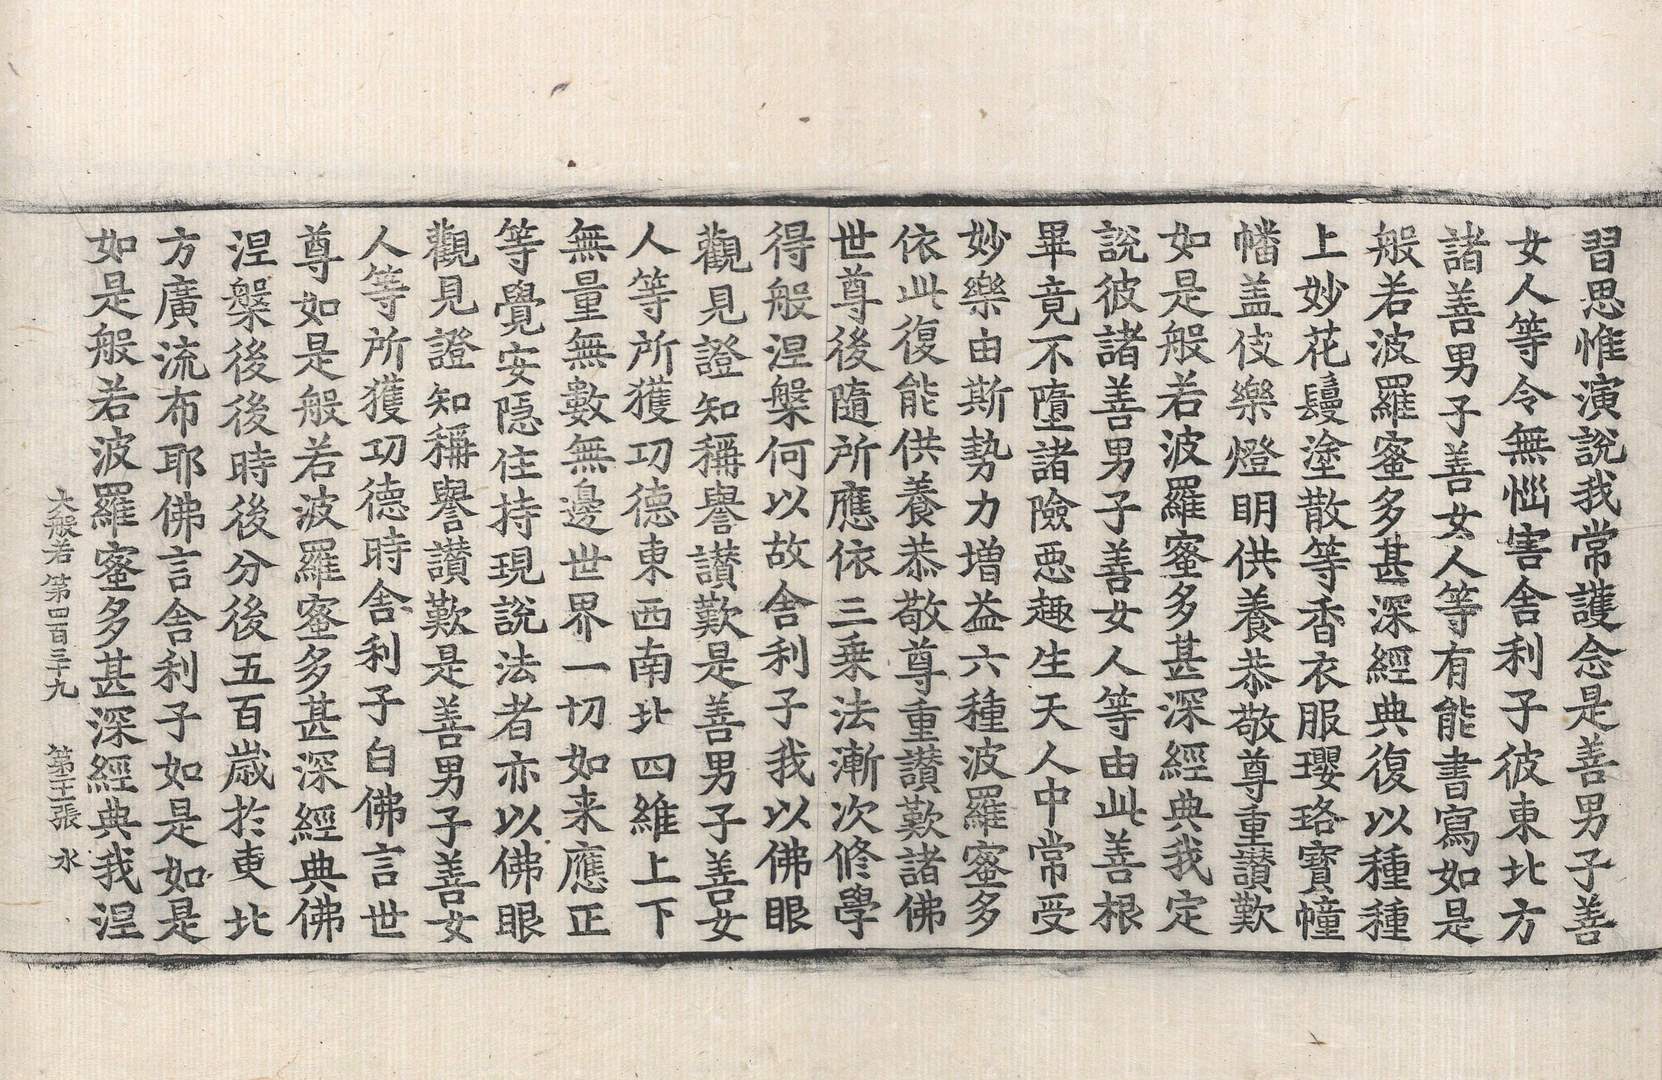 習思惟演說我常護念是善男子善
女人等令無惱害舍利子彼東北方
諸善男子善女人等有能書寫如是
般若波羅蜜多甚深經典復以種種
上妙花鬘塗散等香衣服瓔珞寶幢
幡盖伎樂燈明供養恭敬尊重讃歎
如是般若波羅蜜多甚深經典我定
說彼諸善男子善女人等由此善根
畢竟不墮諸險惡趣生天人中常受
妙樂由斯勢力增益六種波羅蜜多
依此復能供養恭敬尊重讃歎諸佛
世尊後隨所應依三乗法漸次修學
得般涅槃何以故舍利子我以佛眼
觀見證知稱譽讃歎是善男子善女
人等所獲功德東西南北四維上下
無量無數無邊世界一切如来應正
等覺安隱住持現說法者亦以佛眼
觀見證知稱譽讃歎是善男子善女
人等所獲功德時舍利子白佛言世
尊如是般若波羅蜜多甚深經典佛
涅槃後後時後分後五百歲於東北
方廣流布耶佛言舍利子如是如是
如是般若波羅蜜多甚深經典我涅
大般若第四百三十九 第十二張 水